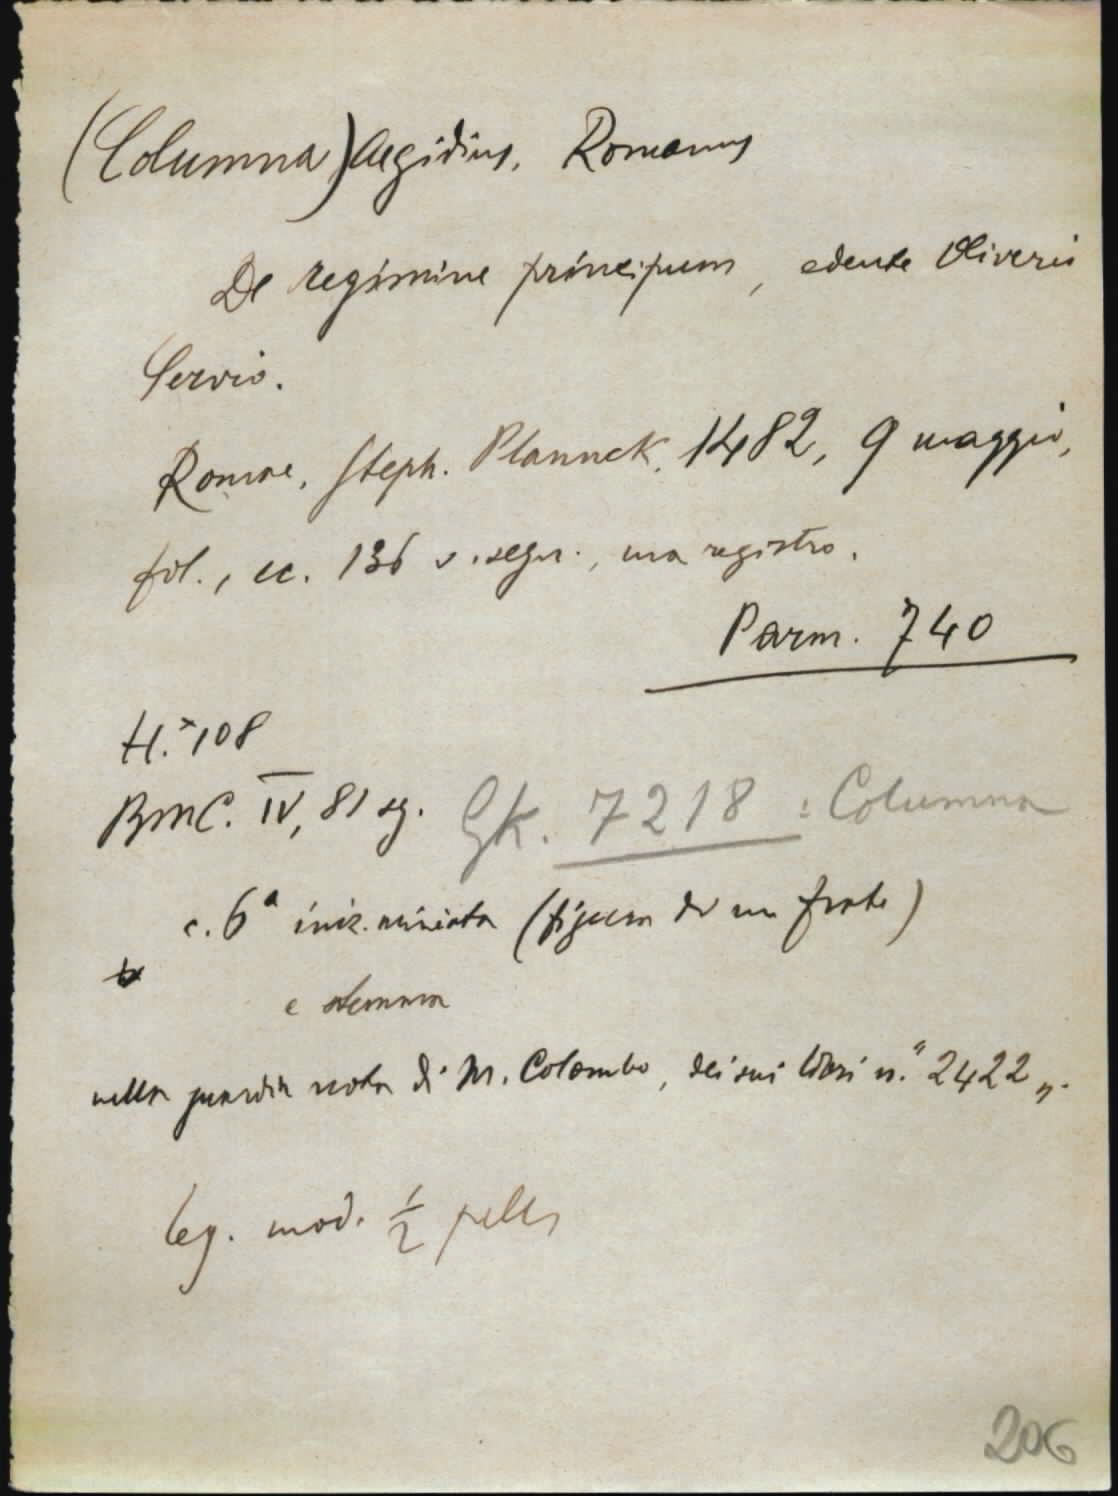 (Columna) Aegidius, Romanus
De regimine principum, edente Oliverio
Servio.
Romae, Steph. Plannck, 1482, 9 maggio,
fol., cc. 136 s. segn., ma registro.
Parm. 740
H.* 108
BMC. IV, 81 sg. GK. 7218 : Columna
c. 6ª iniz. miniata (figura di un frate)
e stemma
nella guardia nota di M. Colombo, dei suoi libri n. "2422„.
leg. mod. ½ pelle
206